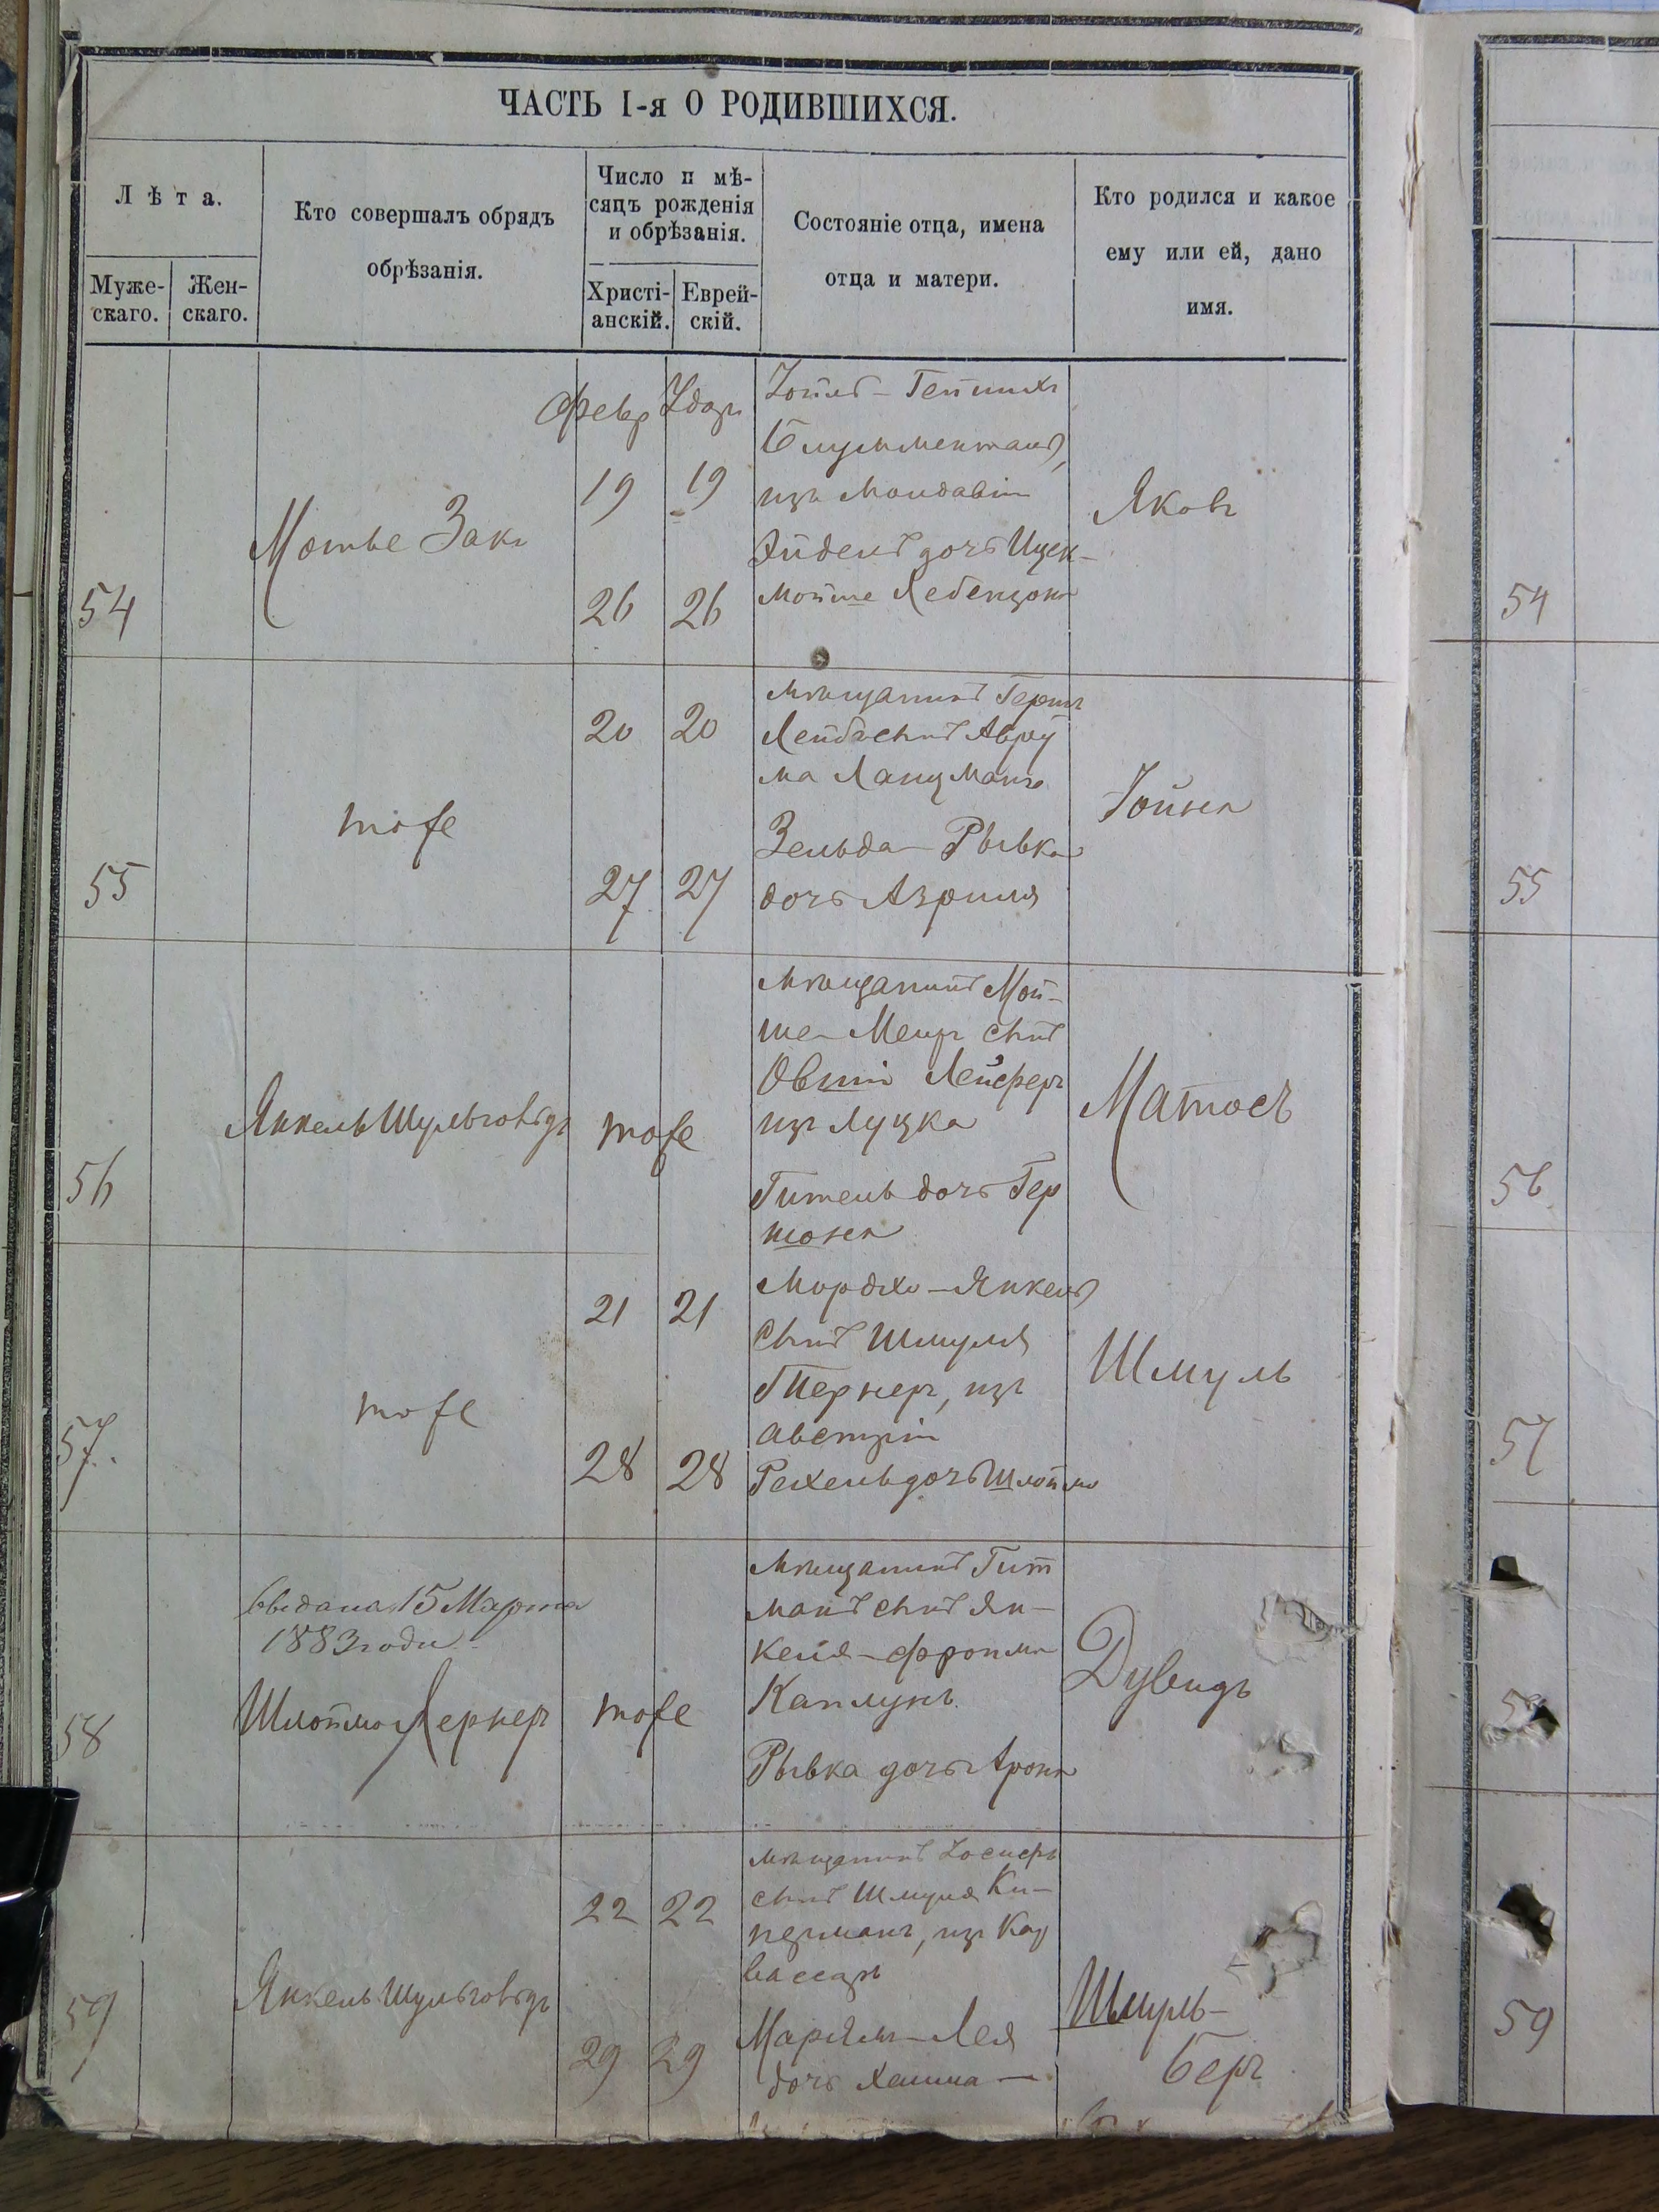 ЧАСТЬ I-я О РОДИВШИХСЯ.
Лѣта.
Муже-
скаго.
Жен-
скаго.
Кто совершалъ обрядъ
обрѣзанія.
Число и мѣ-
сяцъ рожденія
и обрѣзанія.
Христі-
анскій.
Еврей-
скій.
Состояніе отца, имена
отца и матери.
Кто родился и какое
ему или ей, дано
имя.
54
Мотье Закъ
Февр
19
26
Адаръ
19
26
Блументаль,
изъ Молдавіи
Эйдель дочь Ицек-
Мойше Лебензона
Яковъ
54
55
тоже
20
27
20
27
мѣщанинъ Гершъ
Лейба сынъ Авру
ма Ланцманъ
Зельда-Рывка
дочь Азриля
Іойна
55
56
Янкель Шульговѣръ
тоже
мѣщанинъ Мой-
ше-Меиръ сынъ
Овшій Лейферъ
изъ Луцка
Гитель дочь Гер
шона
Матосъ
56
57.
тоже
21
28
21
28
Мордхо-Янкель
сынъ Шмуля
изъ
Австріи
Рехель дочь Шлоймо
Шмуль
57
58
выдана 15 Марта
1883 года
Шлоймо Лернеръ
тоже
мѣщанинъ Гит
манъ сынъ Ян-
келя-Фроима
Каплунъ
Рывка дочь Арона
Дувидъ
58
59
Янкель Шульговѣръ
22
29
22
29
мѣщанинъ Іосифъ
сынъ Шмуля Ки-
перманъ, изъ Кау
Марьямъ-Лея
дочь Хаима-
Шмуль-
Беръ
59